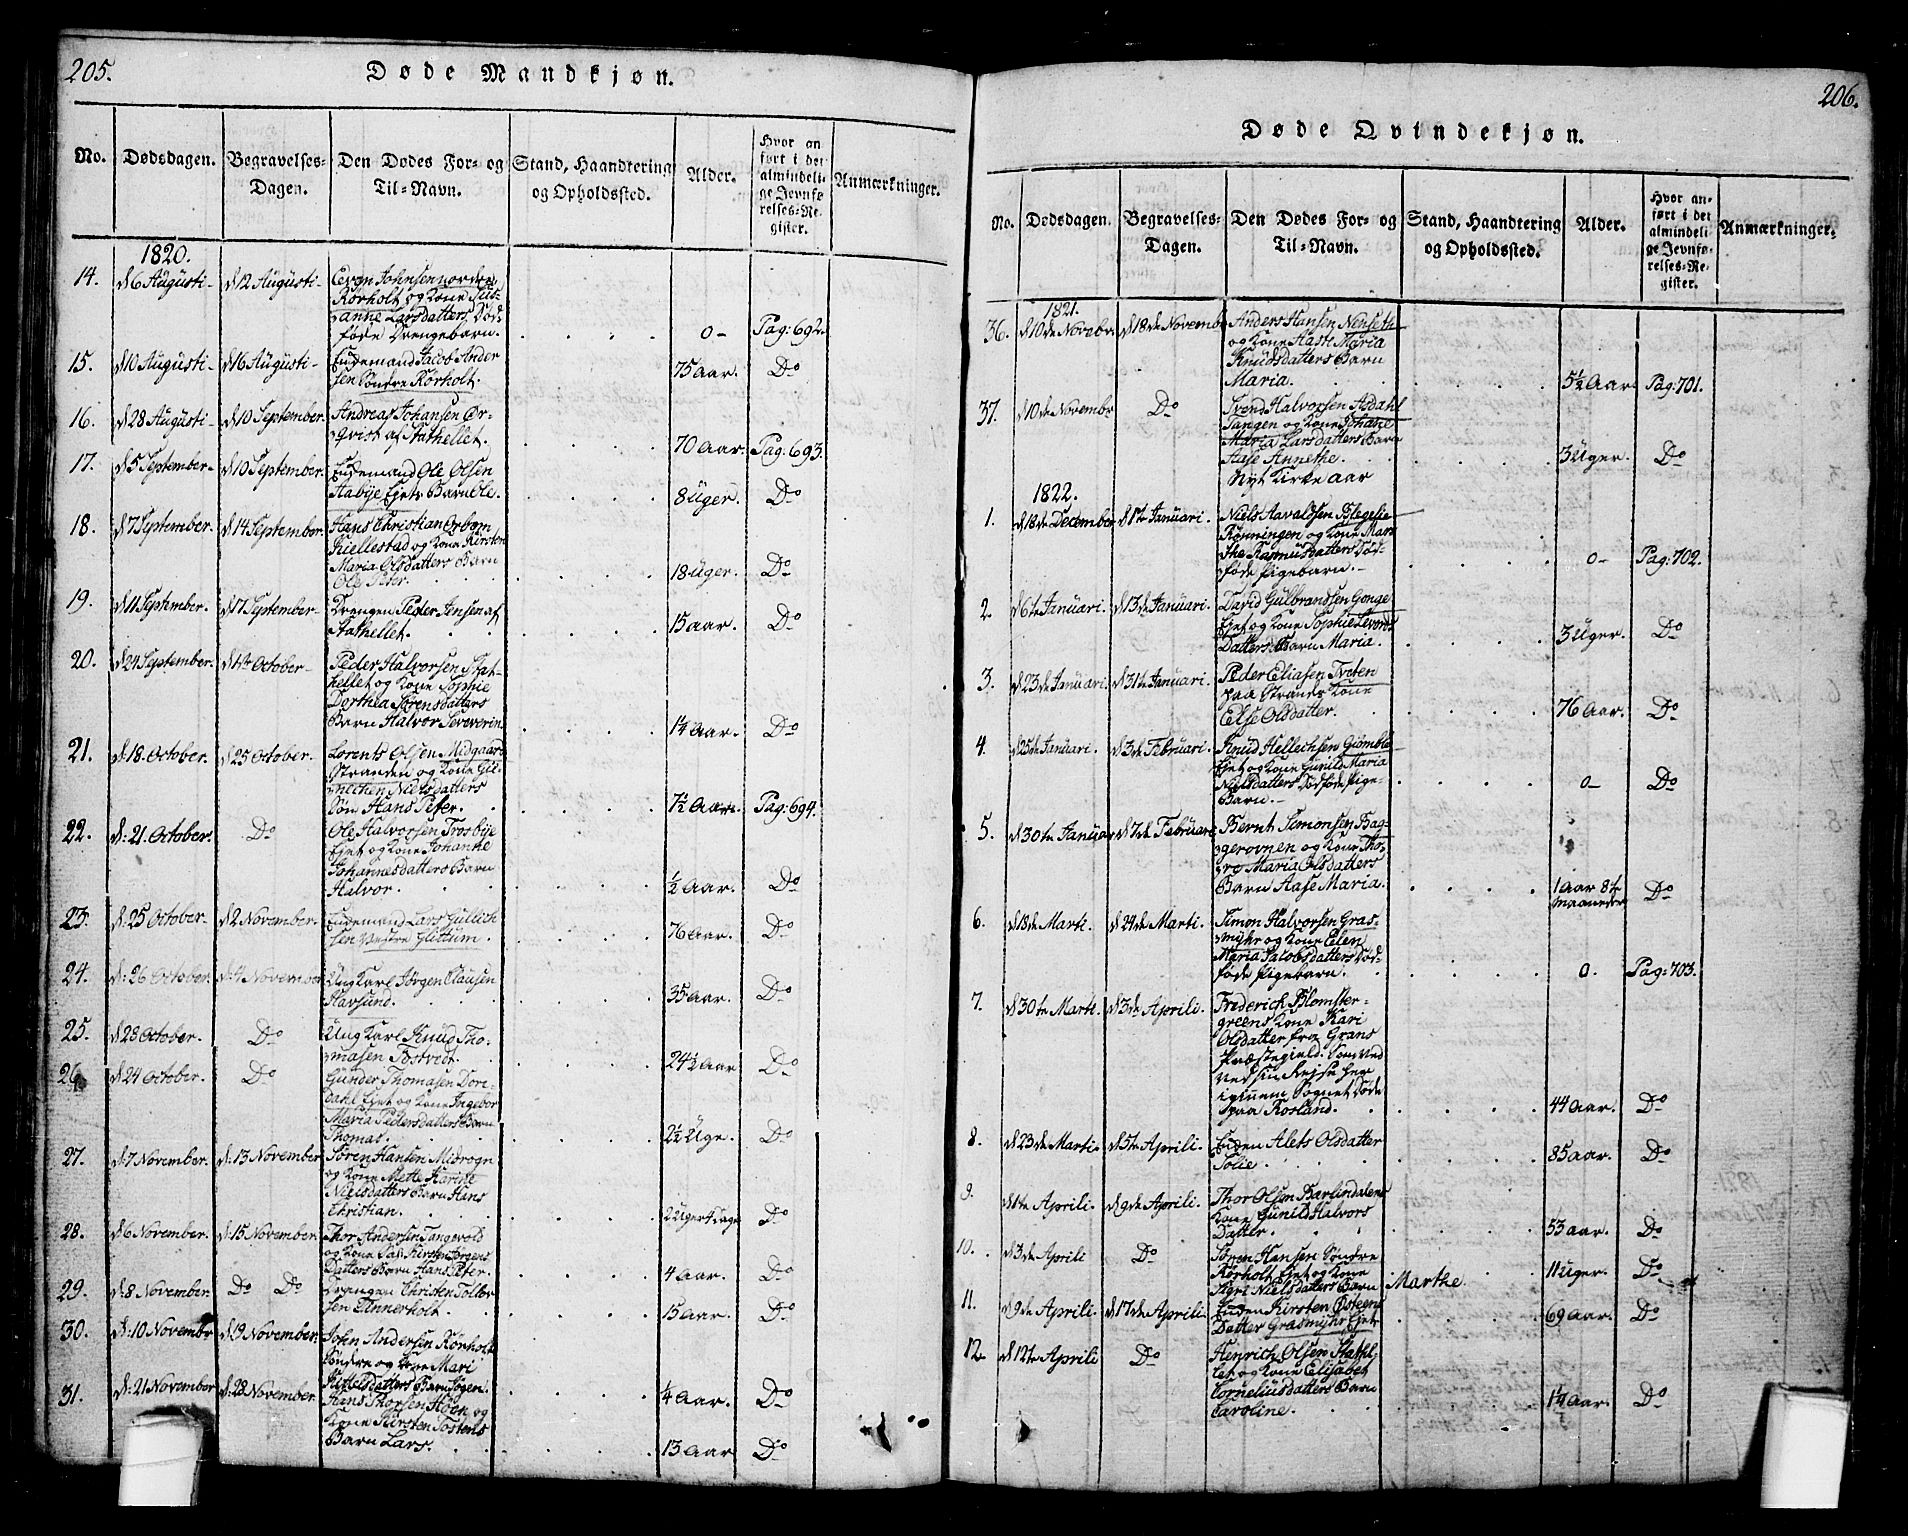 205.
Døde Mandkjøn.
No.
Dødsdagen.
Begravelses-
Dagen.
Den Dødes For- og
Til-Navn.
Stand, Haandtering
og Opholdssted.
Alder.
Hvor an
ført i det
almindeli
ge Jevnfø
relses-Re
gister.
Anmærkninger.
1820.
14. d 6 Augusti- d 12 Augusti- Johnsen nordre
Rörholt og Kone Sus-
anne Larsdatters Död-
föde Drengebarn. 0- Pag: 692.
15. d 10 Augusti- d 16 Augusti- Enkemand Jacob Ander
sen Söndre Rörholt. 75 Aar. Do
16. d 28 Augusti- d 10 September. Andreas Johansen Ør-
qvist af Stathellet. 70 Aar. Pag: 693.
17. d 5 September- d 10 September. Ole Olsen
Aabije Ejets Barn Ole. 8 Uger. Do
18. d 7 September. d 14 September. Hans Christian Orbom
Kiellestad og Kone Kirsten
Maria Olsdatters Barn
Ole Peter. 18 Uger. Do
19. d 11 September. d 17 September- Drengen Peder Jensen af
Stathellet. 15 Aar. Do
20. d 24 September. d 1te October- Peder Halvorsen Stat-
hellet og Kone Sophie
Derthea Sörensdatters
Barn Halvor Severin 1¼ Aar. Do
21. d. 18. October. d 25 October. Lorents Olsen Midgaard
Stranden og Kone
Nielsdatters
Sön Hans Peter. 7½ Aar. Pag: 694.
22. d: 21. October. Do Ole Halvorsen Trosbije
Ejet og Kone Johanne
Johannesdatters Barn
Halvor. ½ Aar. Do
23. d: 25 October. d 2 November. Enkemand Lars Gullich
sen Vestre Glittum. 76 Aar. Do
24. d: 26 October. d: 4 November Ung Karl Jörgen Clausen
Havsund. 35 Aar. Do
25. d 28 October. Do Ung Karl Knud Tho-
masen Tostvedt. 24½ Aar Do
26. d 24 October. Do Gunder Thomasen Dore-
dahl Ejet og Kone Ingebor
Maria Pedersdatters Barn
Thomas. 2½ Uge. Do
27. d: 7 November. d: 13 November Sören Hansen Midrogn
og Kone Mette Karine
Nielsdatters Barn Hans
Christian. 2 Uger 4 Dage Do
28. d 6 November. d: 15 November. Thor Andersen Tangevold
og Kone Kirsten Jörgens
Datters Barn Hans Peter. 4 Aar. Do
29. d: 8 November. Do Do Drengen Christen Tollev
sen Finnerholt. 15 Aar. Do
30. d: 10 Novembr d: 19 November. John Andersen Rörholt
Söndre og Kone Mari
Kittelsdatters Barn Jögen. ¼ Aar. Do
31. d: 21 November d: 28 November. Hans Thorsen Höen og
Kone Kirsten Tostens
Barn Lars. 13 Aar Do
206.
Døde Qvindekjøn.
No.
Dødsdagen.
Begravelses-
Dagen.
Den Dødes For- og
Til-Navn.
Stand, Haandtering
og Opholdssted.
Alder.
Hvor an-
ført i det
almindeli
ge Jevnfø-
relses-Re-
gister.
Anmærkninger.
1821.
36. d 10de Novebr. d 18de Novembr Anders Hansen Nenseth
og Kone Aaste Maria
Knudsdatters Barn
Maria. 5½ Aar. Pag: 701.
37. d 10de Novembr Do Svend Halvorsen Asdahl
Tangen og Kone Johane
Maria Larsdatters Barn
Aase Annethe. 3 Uger. Do
Nyt Kirke aar
1822.
1. d 18de December d 1te Januari. Niels Aavaldsen
Rönningen og Kone Mar-
the Rasmusdatters Död-
föde Pigebarn. 0- Pag: 702.
2. d 6te Januari. d 13de Januari. David Gulbrandsen Gonge
Ejet og Kone Sophie Severs
Datters Barn Maria. 3 Uger. Do
3. d 23de Januari. d 31te Januari. Peder Eliasen Tvéten
paa Strands Kone
Else Olsdatter. 76 Aar. Do
4. d 25de Januari. d 3de Februari. Knud Hellechsen Giömble
Ejet og Kone Gunild Maria
Nielsdatters Dödföde Pige-
Barn. 0- Do
5. d 30te Januar d 7de Februari Bernt Simonsen Bag-
gerovnen og Kone Tho-
ra Maria Olsdatters
Barn Aase Maria. 1 Aar 8te
Maaneder Do
6. d 18de Marti. d 24de Marti. Simon Halvorsen Gras-
myhr og Kone Elen
Maria Jacobsdatters Död-
föde Pigebarn. 0. Pag: 703.
7. d 30te Marti. d 3de Aprili. Frederich Blomster-
greens Kone Kari
Olsdatter fra Grans
Præstegield. Som ved
ved sin Rejse her
igiennem Sognet Döde
paa Rosland. 44 Aar. Do
8. d 23de Marti. d 5te Aprili. Enken Alets Olsdatter
Solie. 85 Aar. Do
9. d 1te Aprili. d 9de Aprili. Thor Olsen Barlindalens
Kone Gunild Halvors
Datter. 53 Aar. Do
10. d 3de Aprili Do Sören Hansen Söndre
Rörholt Ejet og Kone
Agri Nielsdatters Barn Marthe. 11 Uger. Do
11. d 9de Aprili. d 17de Aprili. Enken Kirsten Østeen
Datter Grasmyhr Ejet. 69 Aar. Do
12. d 12te Aprili Do Henrich Olsen Stathl-
let og Kone Elisabet
Corneliusdatters Barn
Caroline. 1¼ Aar. Do